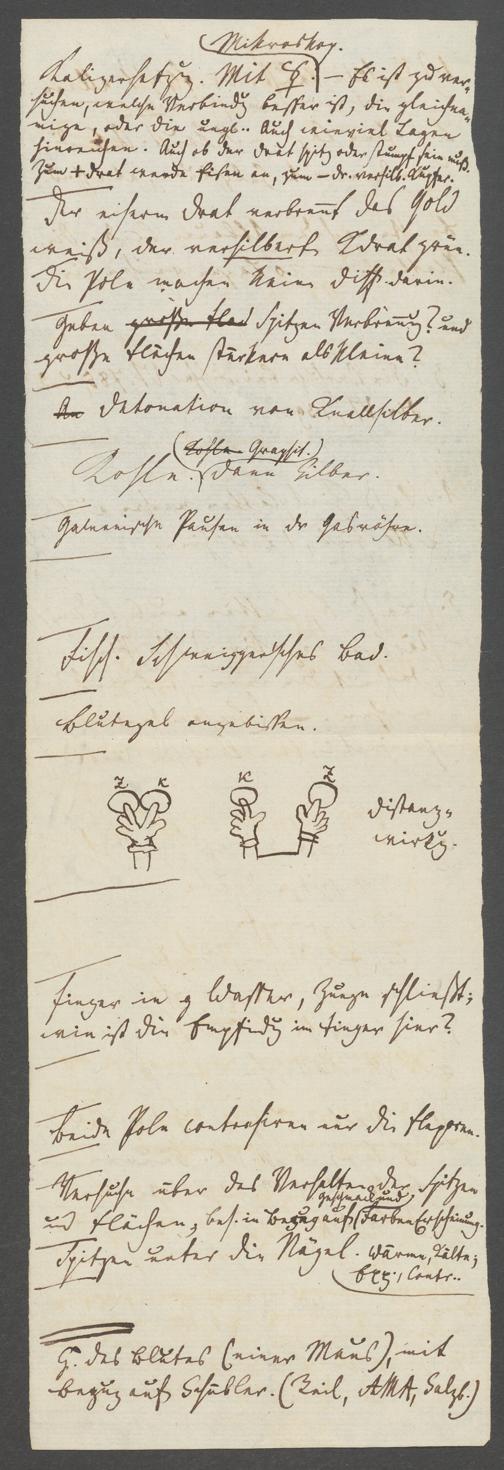 Mikroskop.
Kalizersetzg. Mit ☿. – Es ist zu ver-
suchen, welche Verbindg besser ist, die gleichna-
mige, oder die ungl.. Auch wieviel Lagen
hinreichen. Auch ob der Drat spitz oder stumpf sein muß.
Zum + drat wende Eisen an, zum – dr. versilb. Kupfer.
Der eiserne Drat verbrennt das Gold
weiß, der versilberte Kdrat grün.
Die Pole machen keine diff. darin.
Geben Spitzen Verbrenng? und
große Flächen stärkere als kleine?
Detonation von Knallsilber.
(Kohle Graphit.)
Kohle. dann Silber.
Galvanische Pausen in der Gasröhre.
Fisch. Schweiggersches Bad.
Blutegel angebissen.
Z K K Z
distanz-
wirkg.
Finger in Wasser, Zunge schließt;
wie ist die Empfidg im Finger hier?
Beide Pole contrahiren nur die flexoren.
Versuche über das Verhalten der Spitzen
Geschmack und
und Flächen, bes. in Bezug auf Farben Erscheinung.
Spitzen unter die Nägel. Wärme, Kälte;
Exp., Contr..
G. des Blutes (einer Maus), mit
Bezug auf Schübler. (Reil, AMA, Salzb.)